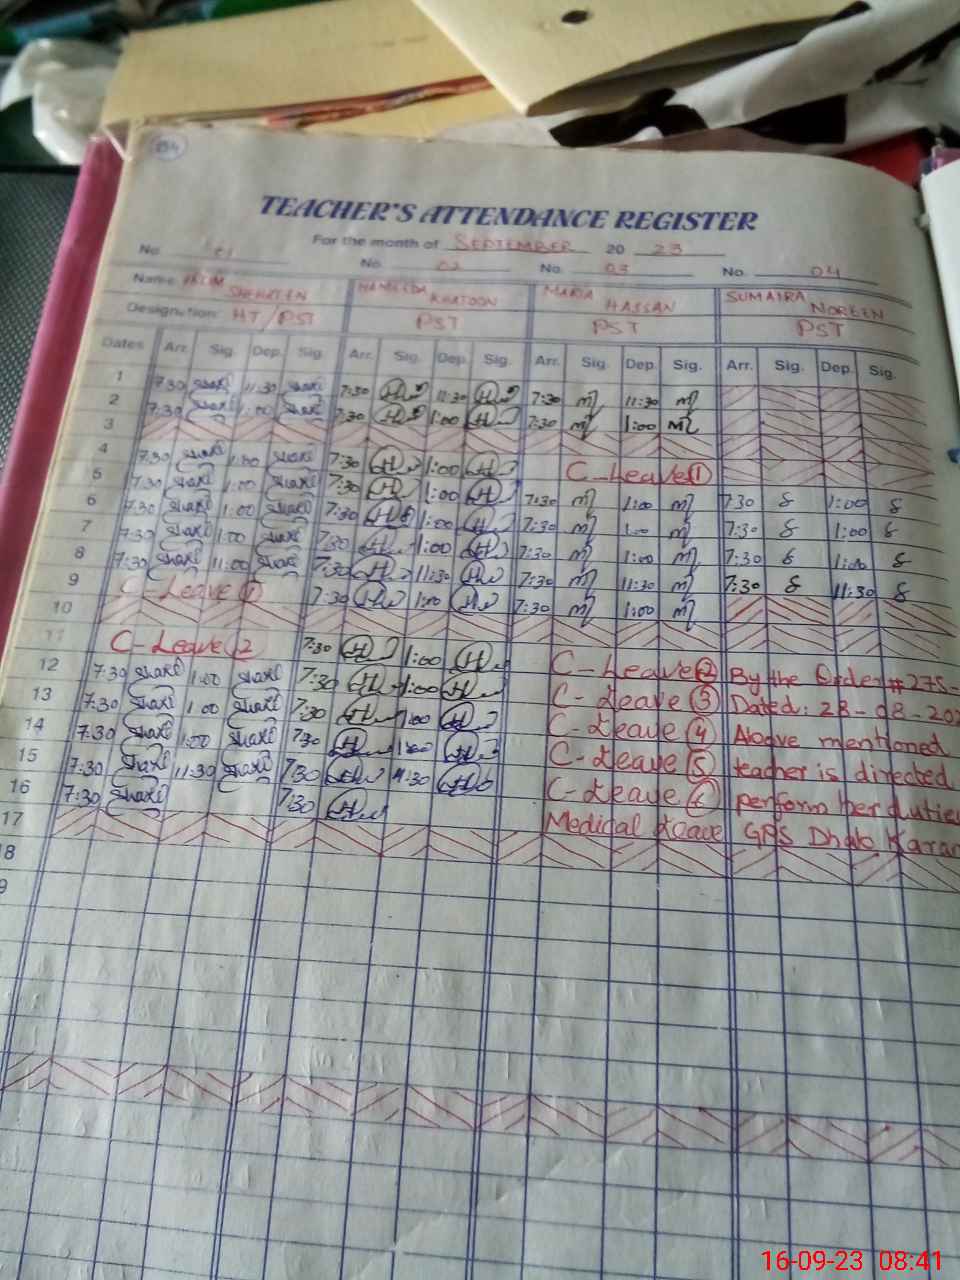 134
TEACHER'S ATTENDANCE REGISTER
For the month of SEPTEMBER 20 23
No. 01 No. 02 No. 03 No. 04
Name: SHEHREEN HAMEEDA KHATOON MARIA HASSAN SUMAIRA NOREEN
Designation: HT/PST PST PST PST
Dates Arr. Sig. Dep. Sig. Arr. Sig. Dep. Sig. Arr. Sig. Dep. Sig. Arr. Sig. Dep. Sig.
1 7:30 11:30 7:30 11:30 7:30 11:30
2 7:30 1:00 7:30 1:00 7:30 1:00
3
4 7:30 1:00 7:30 1:00 C-Leave 1
5 7:30 1:00 7:30 1:00 7:30 1:00 7:30 1:00
6 7:30 1:00 7:30 1:00 7:30 1:00 7:30 1:00
7 7:30 1:00 7:30 1:00 7:30 1:00 7:30 1:00
8 7:30 11:00 7:30 11:30 7:30 11:30 7:30 11:30
9 C-Leave 1 7:30 1:00 7:30 1:00
10
11 C-Leave 2 7:30 1:00 C-Leave 2 By the Order # 275-
12 7:30 1:00 7:30 1:00 C-Leave 3 Dated: 28-08-202
13 7:30 1:00 7:30 1:00 C-Leave 4 Above mentioned
14 7:30 1:00 7:30 1:00 C-Leave 5 teacher is directed
15 7:30 11:30 7:30 11:30 C-Leave 6 perform her dutie
16 7:30 7:30 Medical Leave GPS Dhak Karam
17
18
9
16-09-23 08:41